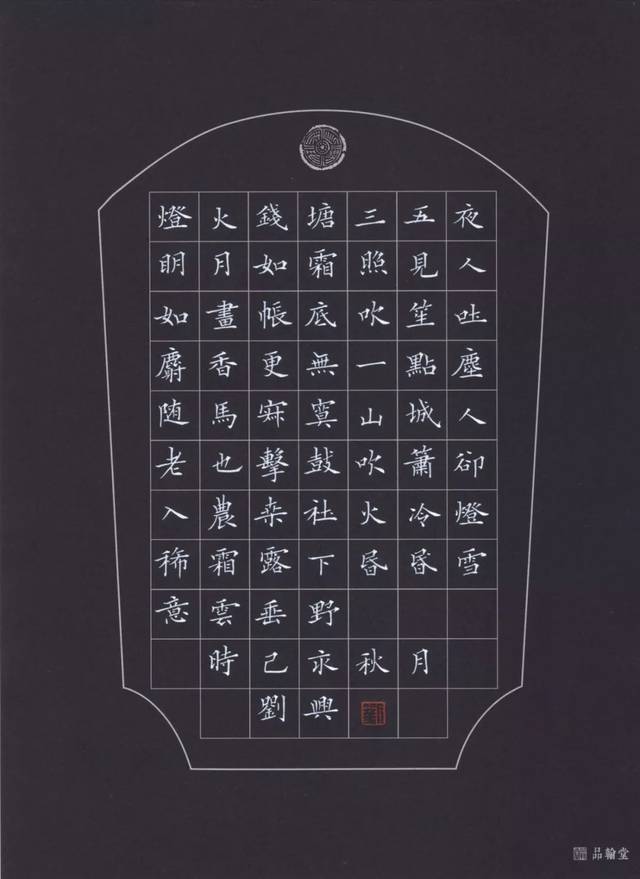 燈火錢塘三五夜
明月如霜照見人
如畫帳底吹笙吐
麝香更無一點塵
随馬寂寞山城人
老也擊鼓吹簫卻
入農桒社火冷燈
稀霜露下昏昏雪
意雲垂野
時己亥秋月
劉興
品翰堂